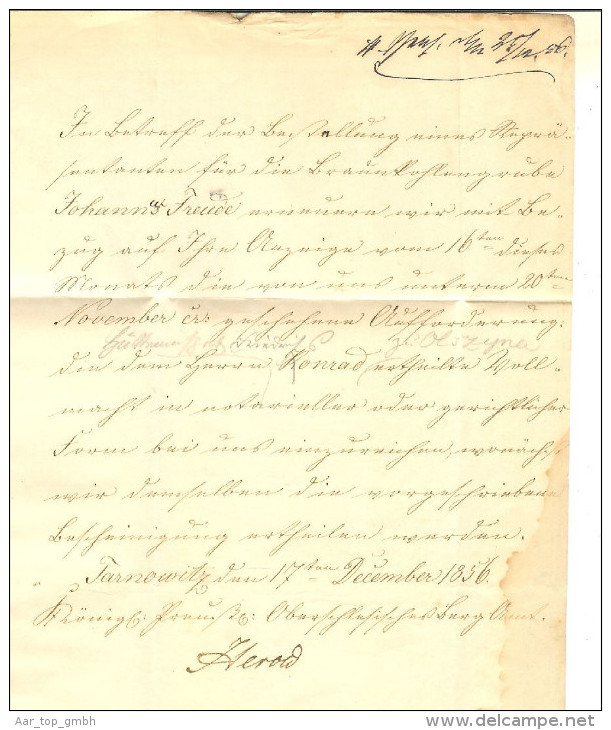 In Betreff der Bestellung eines Reprä-
sentanten für die Braunkohlengrube
Johann's Freude erneuern wir mit Be-
zug auf Ihre Anzeige vom 16ten dieses
Monats die von uns unterm 20ten
November cr: geschehene Aufforderung:
Friedrich Olszyna
die dem Herrn Konrad ertheilte Voll-
macht in notarieller oder gerichtlicher
Form bei uns einzureichen, wonächst
wir demselben die vorgeschriebene
Bescheinigung ertheilen werden.
Tarnowitz den 17ten December 1856.
Königl: Preuß: Oberschlesisches Berg Amt.
Herold
Aar_top_gmbh
www.delcampe.net